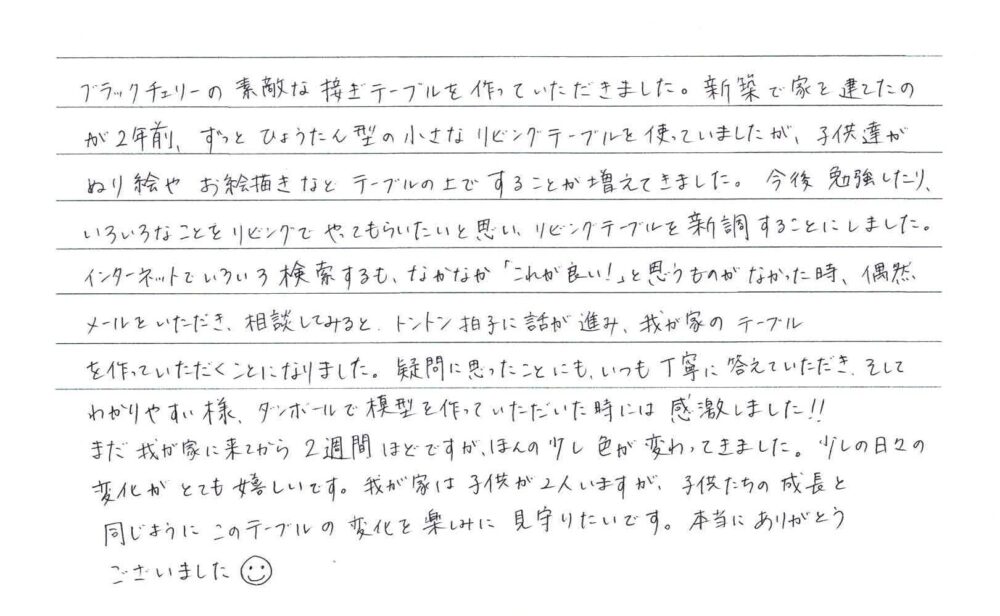 ブラックチェリーの素敵な接ぎテーブルを作っていただきました。新築で家を建てたの
が2年前、ずっとひょうたん型の小さなリビングテーブルを使っていましたが、子供達が
ぬり絵やお絵描きなどテーブルの上ですることが増えてきました。今後勉強したり、
いろいろなことをリビングでやってもらいたいと思い、リビングテーブルを新調することにしました。
インターネットでいろいろ検索するも、なかなか「これが良い!」と思うものがなかった時、偶然、
メールをいただき、相談してみると、トントン拍子に話が進み、我が家のテーブル
を作っていただくことになりました。疑問に思ったことにも、いつも丁寧に答えていただき、そして
わかりやすい様、ダンボールで模型を作っていただいた時には感激しました!!
まだ我が家に来てから2週間ほどですが、ほんの少し色が変わってきました。少しの日々の
変化がとても嬉しいです。我が家は子供が2人いますが、子供たちの成長と
同じようにこのテーブルの変化を楽しみに見守りたいです。本当にありがとう
ございました☺